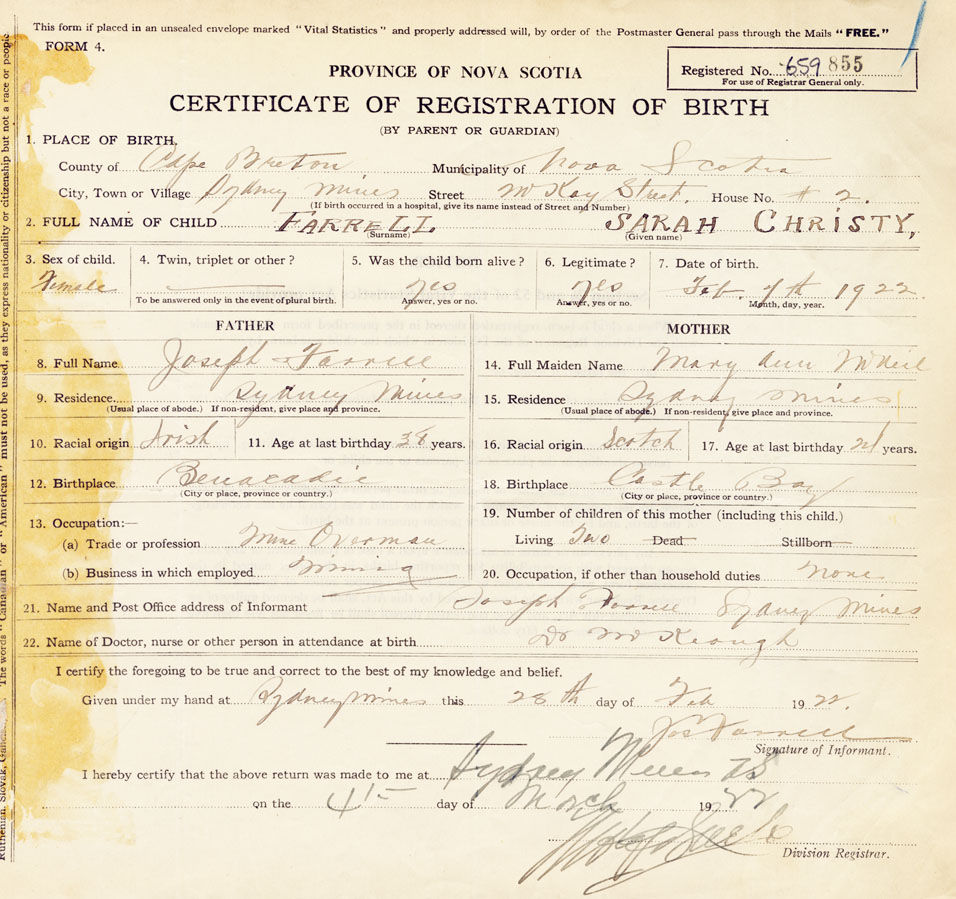 This form if placed in an unsealed envelope marked "Vital Statistics" and properly addressed will, by order of the Postmaster General pass through the Mails "FREE."
FORM 4.
Registered No. 659 855
For use of Registrar General only.
PROVINCE OF NOVA SCOTIA
CERTIFICATE OF REGISTRATION OF BIRTH
(BY PARENT OR GUARDIAN)
1. PLACE OF BIRTH.
County of Cape Breton Municipality of Nova Scotia
City, Town or Village Sydney Mines Street McKay Street. House No. # 2.
(If birth occurred in a hospital, give its name instead of Street and Number)
2. FULL NAME OF CHILD FARRELL SARAH CHRISTY,
(Surname) (Given name)
3. Sex of child. 4. Twin, triplet or other? 5. Was the child born alive? 6. Legitimate? 7. Date of birth.
Female yes yes Feb. 7th 1922
To be answered only in the event of plural birth. Answer, yes or no. Answer, yes or no. Month, day, year.
FATHER MOTHER
8. Full Name Joseph Farrell 14. Full Maiden Name Mary Ann McNeil
9. Residence Sydney Mines 15. Residence Sydney Mines
(Usual place of abode.) If non-resident, give place and province. (Usual place of abode.) If non-resident, give place and province.
10. Racial origin Irish 11. Age at last birthday 38 years. 16. Racial origin Scotch 17. Age at last birthday years.
12. Birthplace Benacadie 18. Birthplace Castle Bay
(City or place, province or country.) (City or place, province or country.)
13. Occupation:— 19. Number of children of this mother (including this child.)
(a) Trade or profession Mine Overman Living Two Dead Stillborn
(b) Business in which employed Mining 20. Occupation, if other than household duties None
21. Name and Post Office address of Informant Joseph Farrell Sydney Mines
22. Name of Doctor, nurse or other person in attendance at birth Dr McKeough
I certify the foregoing to be true and correct to the best of my knowledge and belief.
Given under my hand at Sydney Mines this 28th day of Feb 1922.
Jos Farrell
Signature of Informant.
I hereby certify that the above return was made to me at Sydney Mines NS
on the 4th day of March 1922
Division Registrar.
The words "Canadian" or "American" must not be used, as they express nationality or citizenship but not a race or people.
Ruthenian, Slovak,